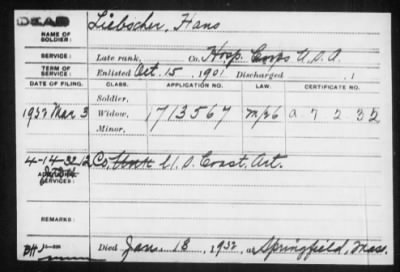 DEAD
NAME OF SOLDIER: Liebscher, Hans
SERVICE: Late rank, Co. Hosp. Corps U.S.A.
TERM OF SERVICE: Enlisted Oct. 15, 1901 Discharged , 1
DATE OF FILING. CLASS. APPLICATION NO. LAW. CERTIFICATE NO.
Soldier,
1932 Mar 3 Widow, 1713567 A 7 2 3 2
Minor,
4-14-32 Co. Unk U.S. Coast. Art.
ADDITIONAL SERVICES:
REMARKS:
Died Jan. 18, 1932, at Springfield, Mass.